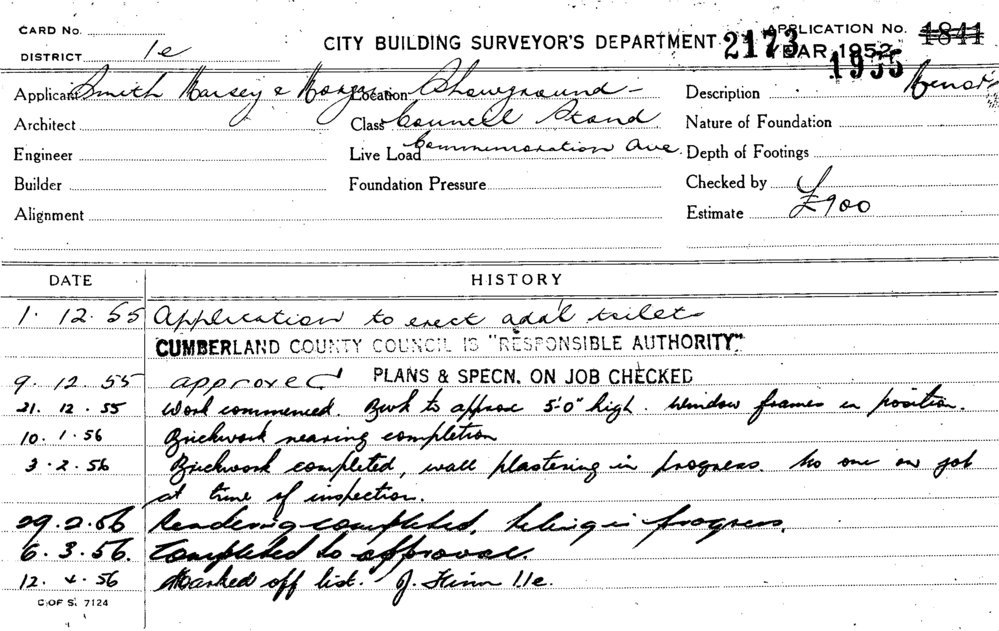 CARD No.
CITY BUILDING SURVEYOR'S DEPARTMENT. 2173 APPLICATION No. 1841
DISTRICT 1e
YEAR 1952 1955
Applicant Smith Location Showground -
Description
Architect Class Council Stand Nature of Foundation
Engineer Live Load Commemoration Ave. Depth of Footings
Builder Foundation Pressure Checked by
Alignment Estimate £900
DATE HISTORY
1. 12. 55 Application to erect adal toilet
CUMBERLAND COUNTY COUNCIL IS "RESPONSIBLE AUTHORITY".
9. 12. 55 approved PLANS & SPECN. ON JOB CHECKED
21. 12. 55 Work commenced. Bwk to approx 5'-0" high. Window frames in position.
10. 1. 56 Brickwork nearing completion
3. 2. 56 Brickwork completed, wall plastering in progress. No one on job
at time of inspection.
29. 2. 56 Rendering completed, tiling in progress.
6. 3. 56. Completed to approval.
12. 4. 56 Marked off list. J. 11e.
C OF S. 7124